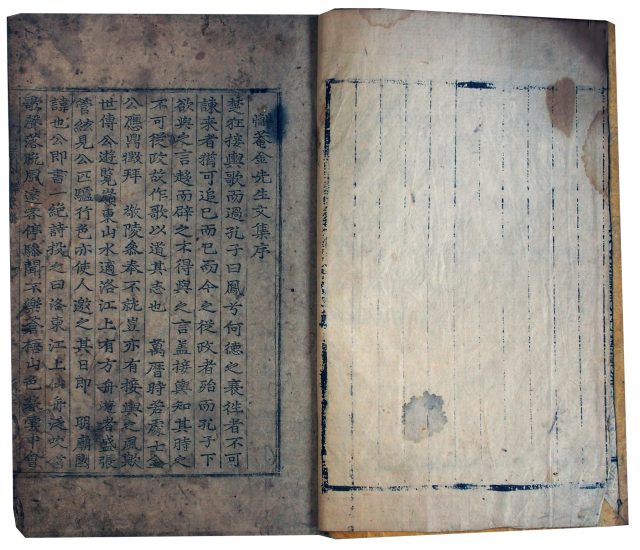 菴金先生文集序
楚狂接輿歌而過孔子曰鳳兮何德之衰徃者不可
諫来者猶可追已而已而今之從政者殆而孔子下
欲與之言趍而辟之不得與之言盖接輿知其時之
不可從政故作歌以道其志也 萬曆時若處士金
公應鼎徵拜 敬陵叅奉不就豈亦有接輿之風歟
世傳公遊覽嶺東山水適洛江上有方舟者盛張
管絃見公匹驢行色亦使人邀之其日即 明廟國
諱也公即書一絶詩投之曰洛東江上仙舟泛吹笛
歌聲落晚風遠客停驂聞不樂蒼梧山色暮雲中曾